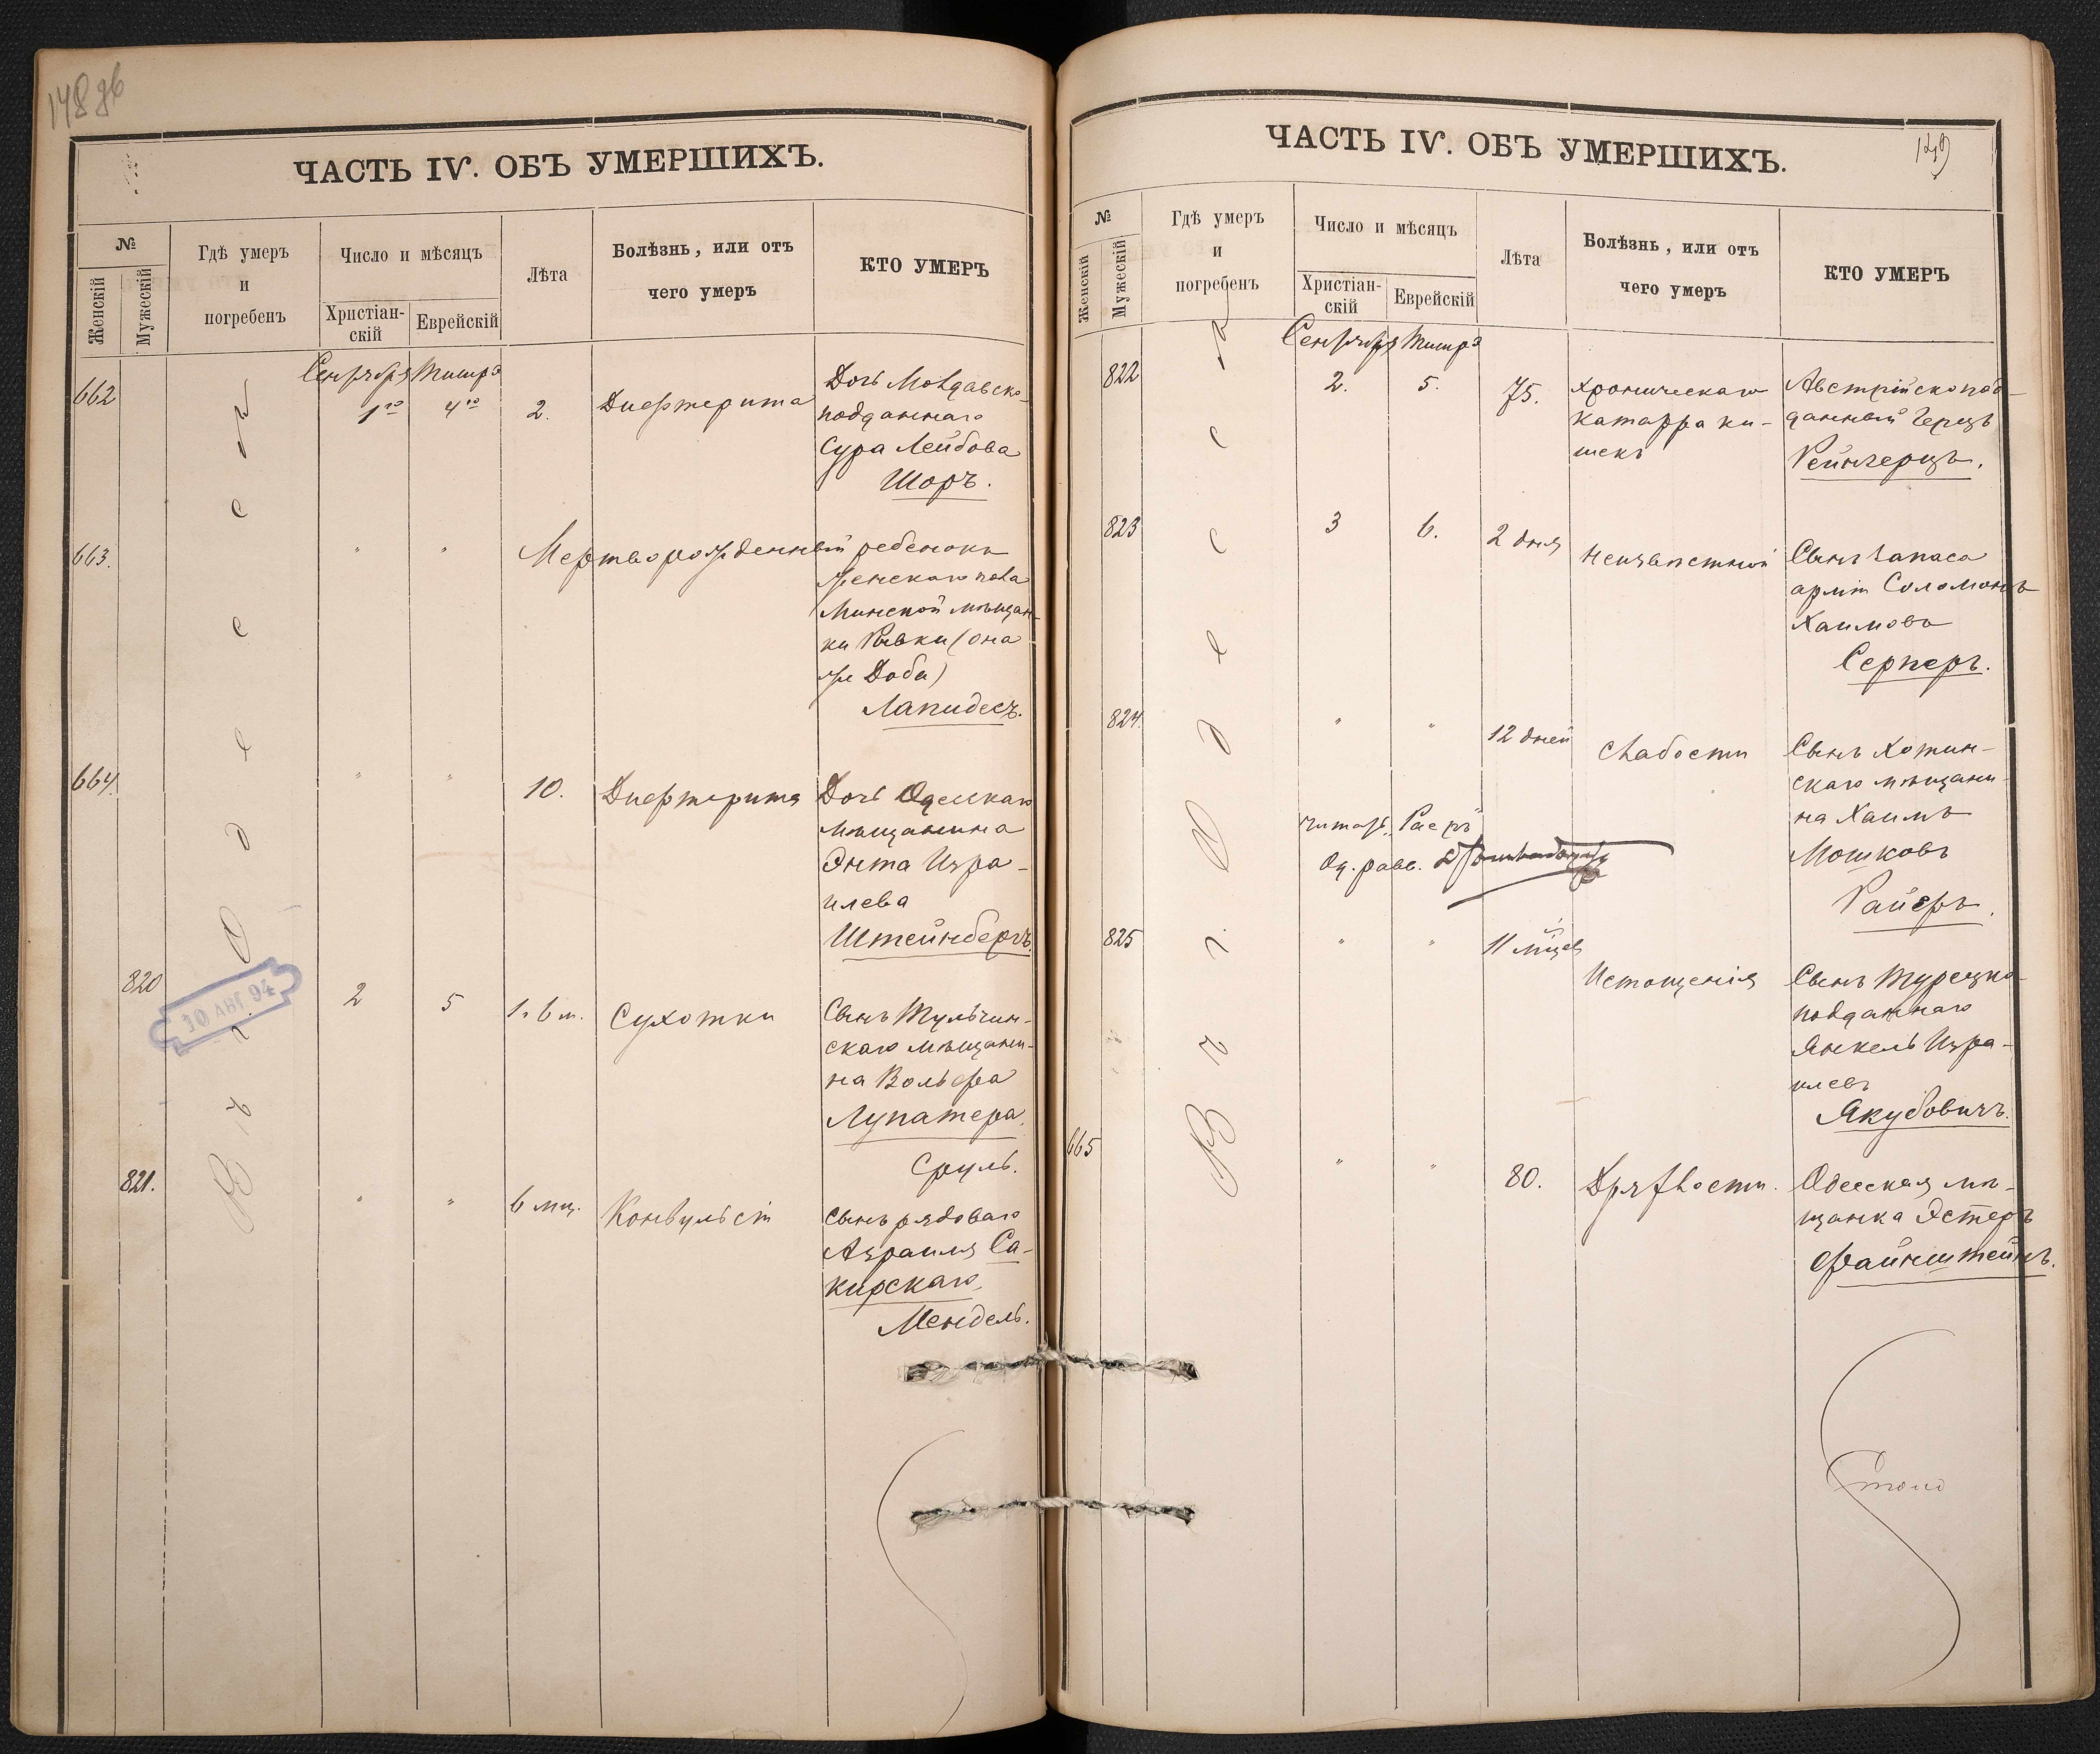 148 об
ЧАСТЬ IV. ОБЪ УМЕРШИХЪ.
№
Женскій
Мужескій
Гдѣ умеръ
и
погребенъ
Число и мѣсяцъ
Христіан-
скій
Еврейскій
Лѣта
Болѣзнь, или отъ
чего умеръ
КТО УМЕРЪ
Въ г. Одессѣ
Сентября Тишрэ
662 1го 4го 2. Дифтерита Дочь Молдавско-
подданнаго
Сура Лейбова
Шоръ.
663. " " Мертворожденный ребенокъ
женскаго пола
Минской мѣщан-
ки Ривки (она
же Доба)
Лапидесъ.
664. " " 10. Дифтерита Дочь Одесскаго
мѣщанина
Энта Изра-
илева
Штейнбергъ.
820 2 5 1г. 6 м. Сухотки Сынъ Тульчин-
скаго мѣщани-
на Вольфа
Лупатера
Сруль.
10 АВГ 94
821. " " 6 мц. Конвульсіи Сынъ рядоваго
Азраиля Са-
кирскаго
Мендель.
149
ЧАСТЬ IV. ОБЪ УМЕРШИХЪ.
№
Женскій
Мужескій
Гдѣ умеръ
и
погребенъ
Число и мѣсяцъ
Христіан-
скій
Еврейскій
Лѣта
Болѣзнь, или отъ
чего умеръ
КТО УМЕРЪ
Въ г. Одессѣ
Сентября Тишрэ
822 2. 5. 75. Хроническаго Австрійскопод-
катарра ки- данный Герцъ
шекъ Рейнгерцъ.
823 3 6. 2 дня Неизвѣстной Сынъ запаса
арміи Соломонъ
Хаимовъ
Серперъ.
824. " " 12 дней Слабости Сынъ Хотин-
скаго мѣщани-
на Хаимъ
Мошковъ
Райеръ.
Од. равв.
825 " " 11 мцев Истощенія Сынъ Турецко-
подданнаго
Янкель Изра-
илевъ
Якубовичъ.
665 " " 80. Дряхлости. Одесская мѣ-
щанка Эстеръ
Файнштейнъ.